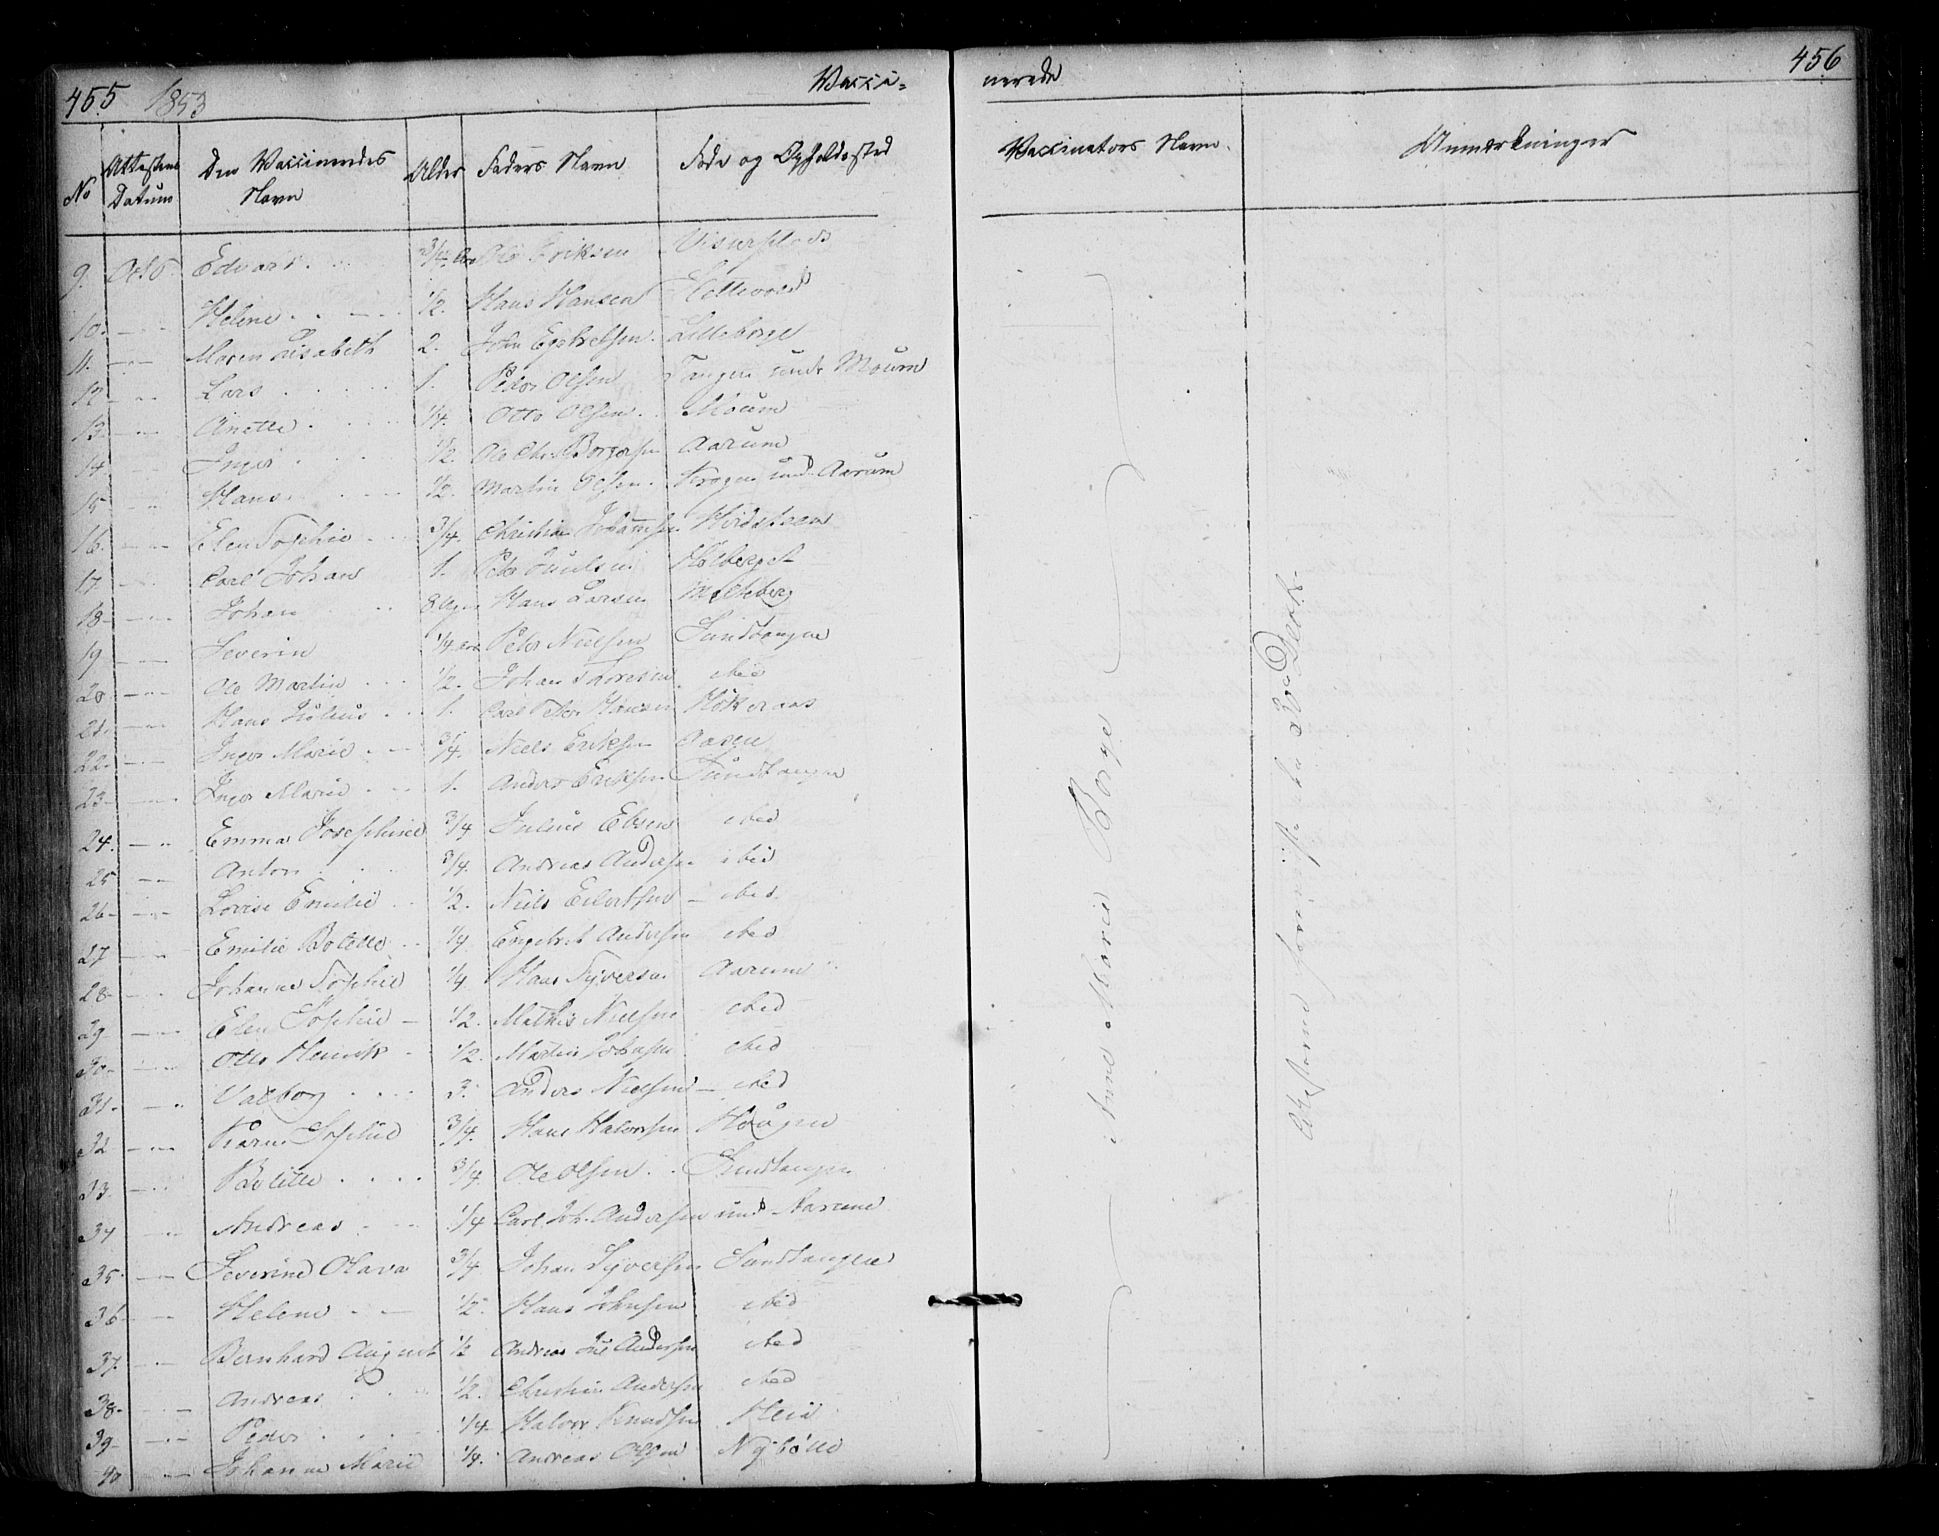 455 1853 Vacci-
nerede 456
No Attestens Datum Den Vaccineredes Navn Alder Faders Navn Føde og Opholdssted Vaccinators Navn. Anmærkninger
9. Octb. Edvart 3/4 Ole Eriksen
10. Helene 1/2. Hans Hansen
11. Maren Lisabeth 2. John Lilleborge
12 Lars 1. Peder Olsen Tangen und. Moum
13 Anette 1/4. Otto Olsen. Moum
14 Inger 1/2. Ole Chr. Borgersen Aarum
15 Hans 1/2. Martin Olsen. Krogen und Aarum
16. Elen Sophie 3/4. Christian Johannesen
17 Carl Johan 1. Peder Holberget
18 Johan Hans Larsen
19 Severin 1/4 Peter Nielsen Sundtangen
20 Ole Martin 1/2. Johan Thoresen ibid
21. Hans Julius 1. Carl Peter Hansen
22. Inger Marie 3/4. Niels Eriksen Aasen
23 Inger Marie 1. Anders Eriksen Sundtangen
24. Emma Josephine 3/4 Julius Ebsen ibid
25 Anton 3/4. Andreas Andersen ibid
26 Lovise Emilie 1/2. Niels Eilertsen ibid.
27 Emilie Bolette 1/4 Engebret Andersen ibid
28 Johanne Sophie 1/4 Hans Syversen Aarum
29 Elen Sophie 1/2. Mathis Nielsen ibid
30 Otto Henrik 1/2. Martin Johnsen ibid
31. Valborg 3. Anders Nielsen ibid
32 Karen Sophie 3/4. Hans Halvorsen Haugen
33. Bolette 3/4 Ole Olsen Sundtangen
34 Andreas 1/4 Carl Joh. Andersen und Aarum
35. Severine Olava 3/4. Johan Syversen Sundtangen
36 Helene 1/2. Hans Johnsen ibid
37. Bernhard August 1/2 Andreas Jul Andersen ibid
38. Andreas 1/2. Christian Andersen ibid
39 Peder 1/4 Halvor Knudsen
40 Johanne Marie 1/4. Andreas Olsen
Anne Marie Borge